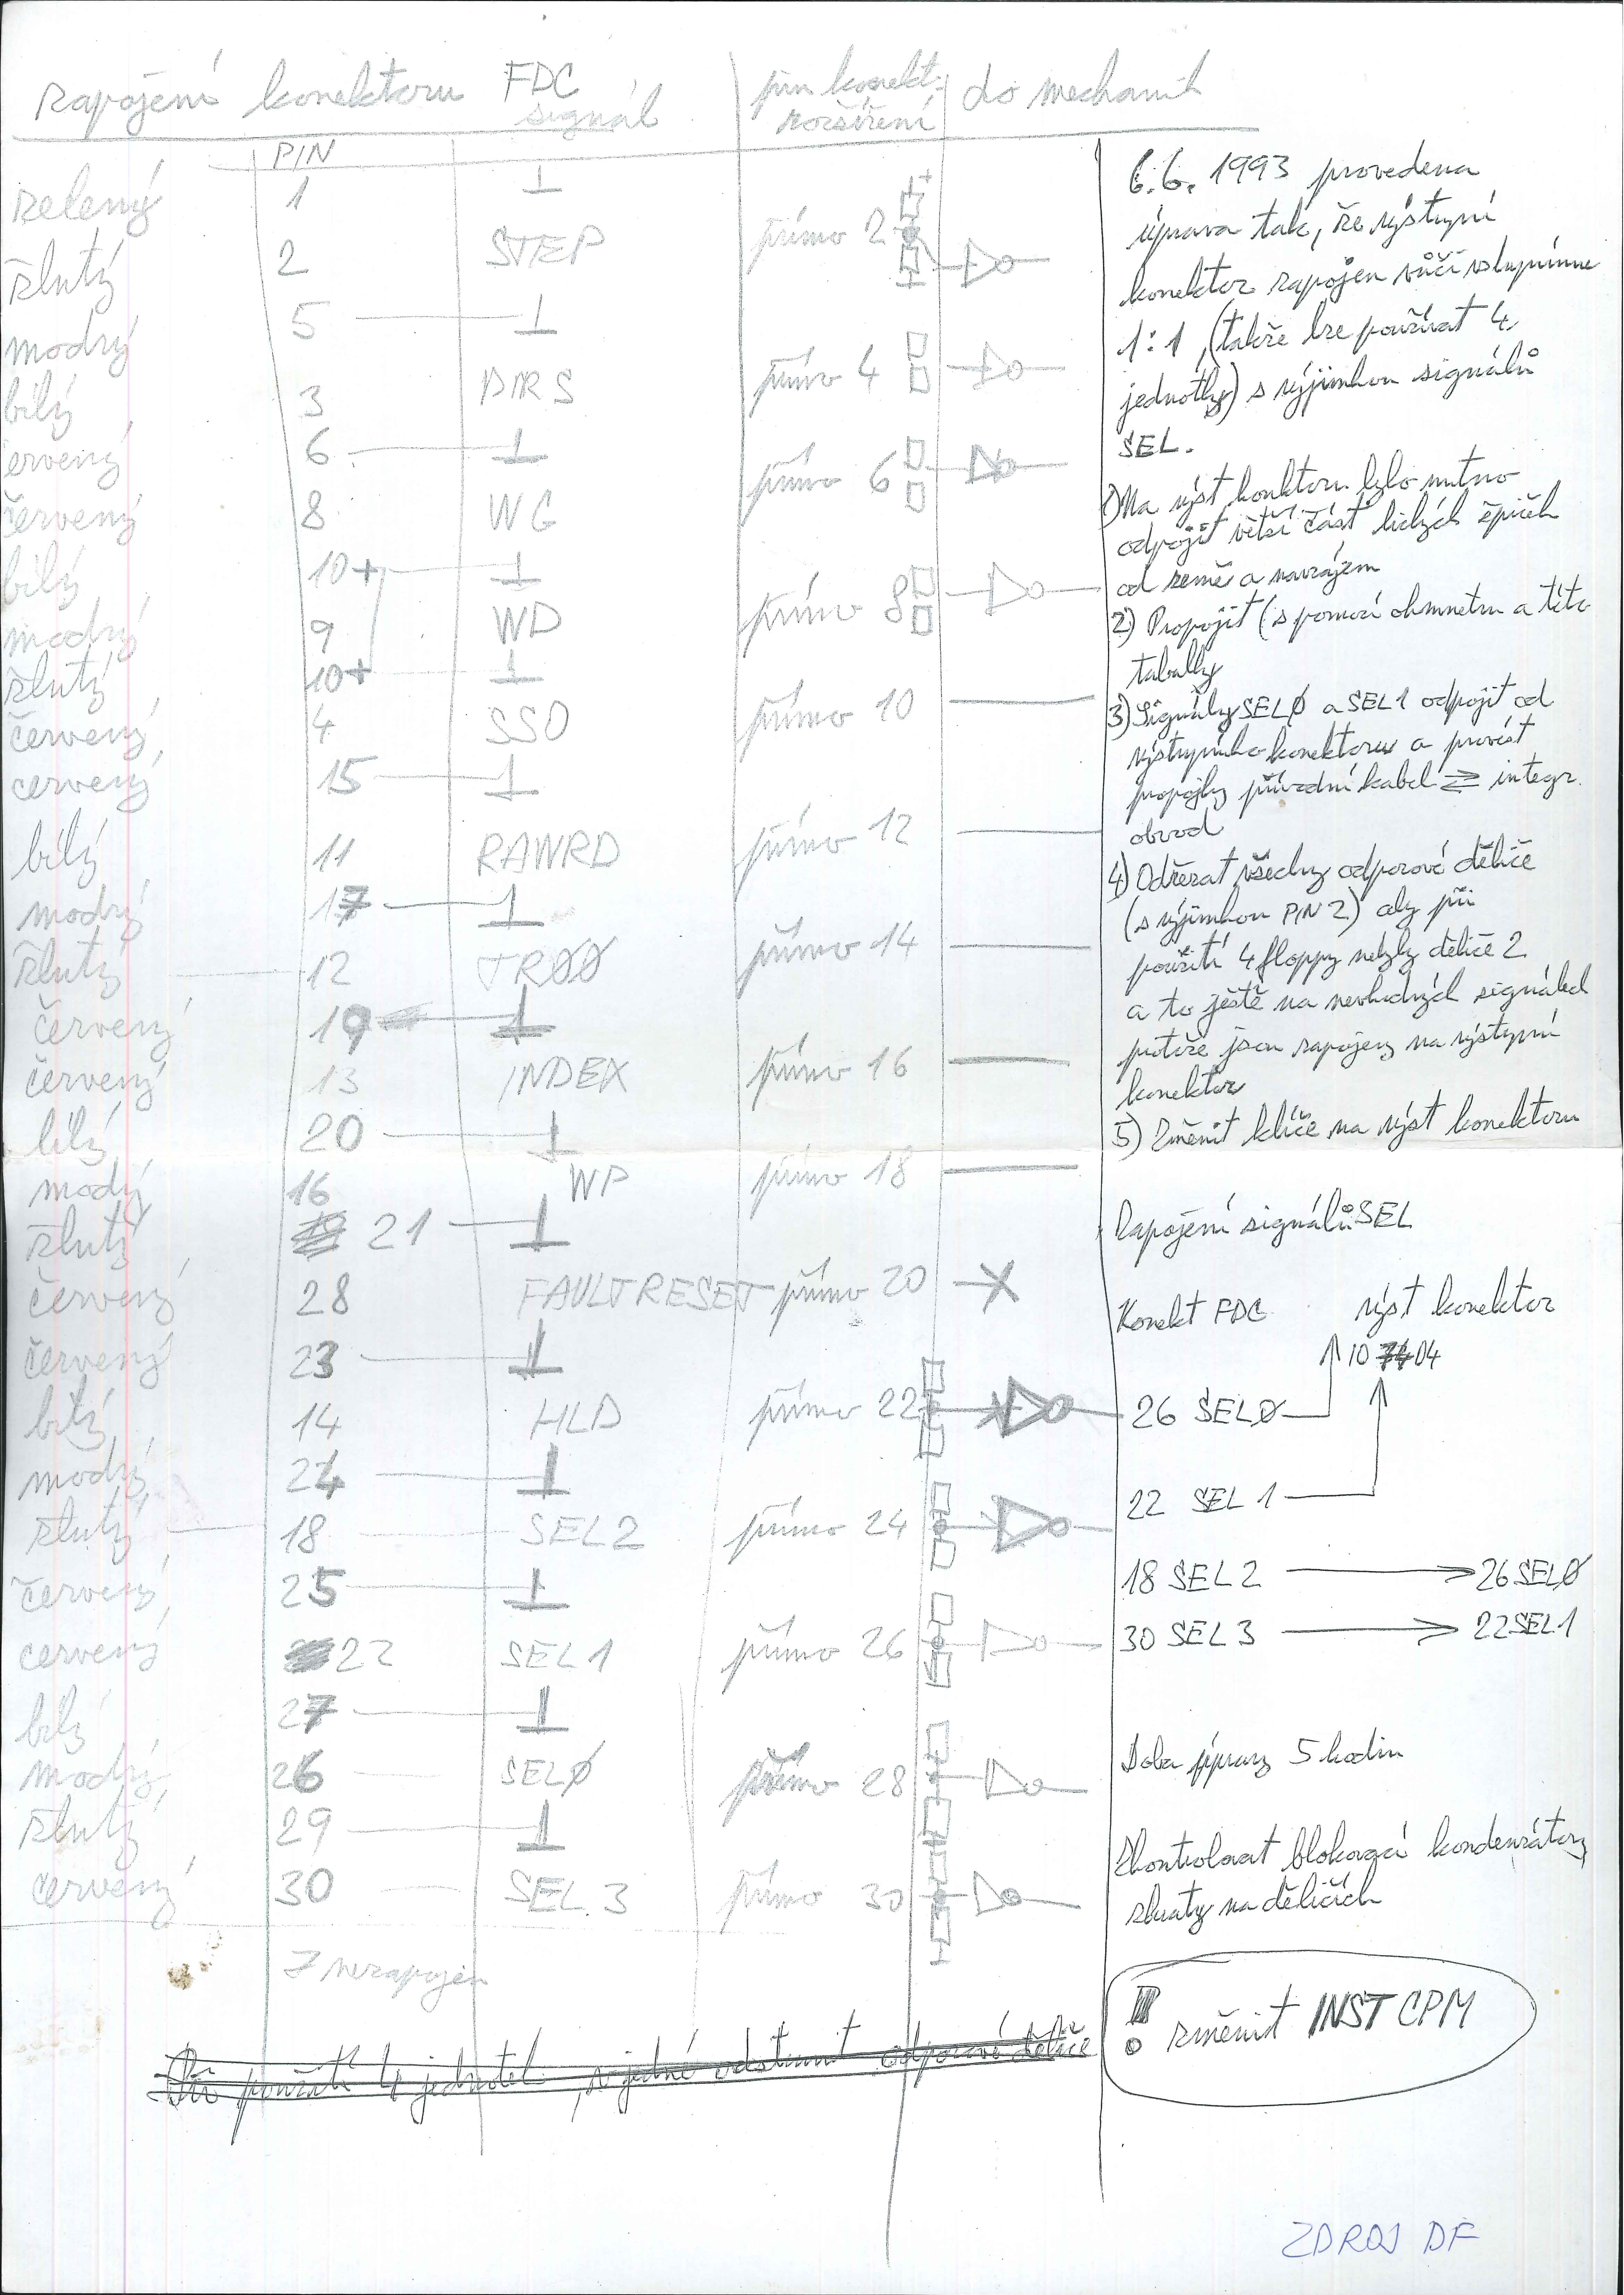 Zapojení konektoru FDC signál pin konekt. rozšíření do mechanik
PIN
zelený 1 ⊥
žlutý 2 STEP přímo 2
modrý 5 ⊥
bílý 3 DIRS přímo 4
ervený 6 ⊥
červený 8 WG přímo 6
bílý 10+ ⊥
modrý 9 WD přímo 8
žlutý 10+ ⊥
červený 4 SSO přímo 10
červený 15 ⊥
bílý 11 RAWRD přímo 12
modrý 17 ⊥
žlutý 12 TRØØ přímo 14
červený 19 ⊥
červený 13 INDEX přímo 16
bílý 20 ⊥
modrý 16 WP přímo 18
žlutý 21 ⊥
červený 28 FAULT RESET přímo 20
červený 23 ⊥
bílý 14 HLD přímo 22
modrý 24 ⊥
žlutý 18 SEL2 přímo 24
červený 25 ⊥
červený 22 SEL1 přímo 26
bílý 27 ⊥
modrý 26 SELØ přímo 28
žlutý 29 ⊥
červený 30 SEL 3 přímo 30
7 nezapojen
Při použití 4 jednotek, z jedné odstranit odporové děliče
6.6. 1993 provedena
úprava tak, že výstupní
konektor zapojen vůči vstupnímu
1:1, (takže lze používat 4
jednotky) s výjimkou signálů
SEL.
1) Na výst konktoru bylo nutno
odpojit větší část lichých špiček
od země a navzájem
2) Propojit (s pomocí ohmmetru a této
tabulky
3) Signály SELØ a SEL1 odpojit od
výstupního konektoru a provést
propojky přívodní kabel ⇄ integr.
obvod
4) Odřezat všechny odporové děliče
(s výjimkou PIN 2) aby při
použití 4 floppy nebyly děliče 2
a to ještě na nevhodných signálech
protože jsou zapojeny na výstupní
konektor
5) Změnit klíče na výst konektoru
Zapojení signálů SEL
Konekt FDC výst konektor
10 04
26 SELØ
22 SEL 1
18 SEL 2 → 26 SELØ
30 SEL 3 → 22 SEL 1
Doba úpravy 5 hodin
Zkontrolovat blokovací kondenzátory
zkraty na děličích
! změnit INST CPM
ZDROJ DF